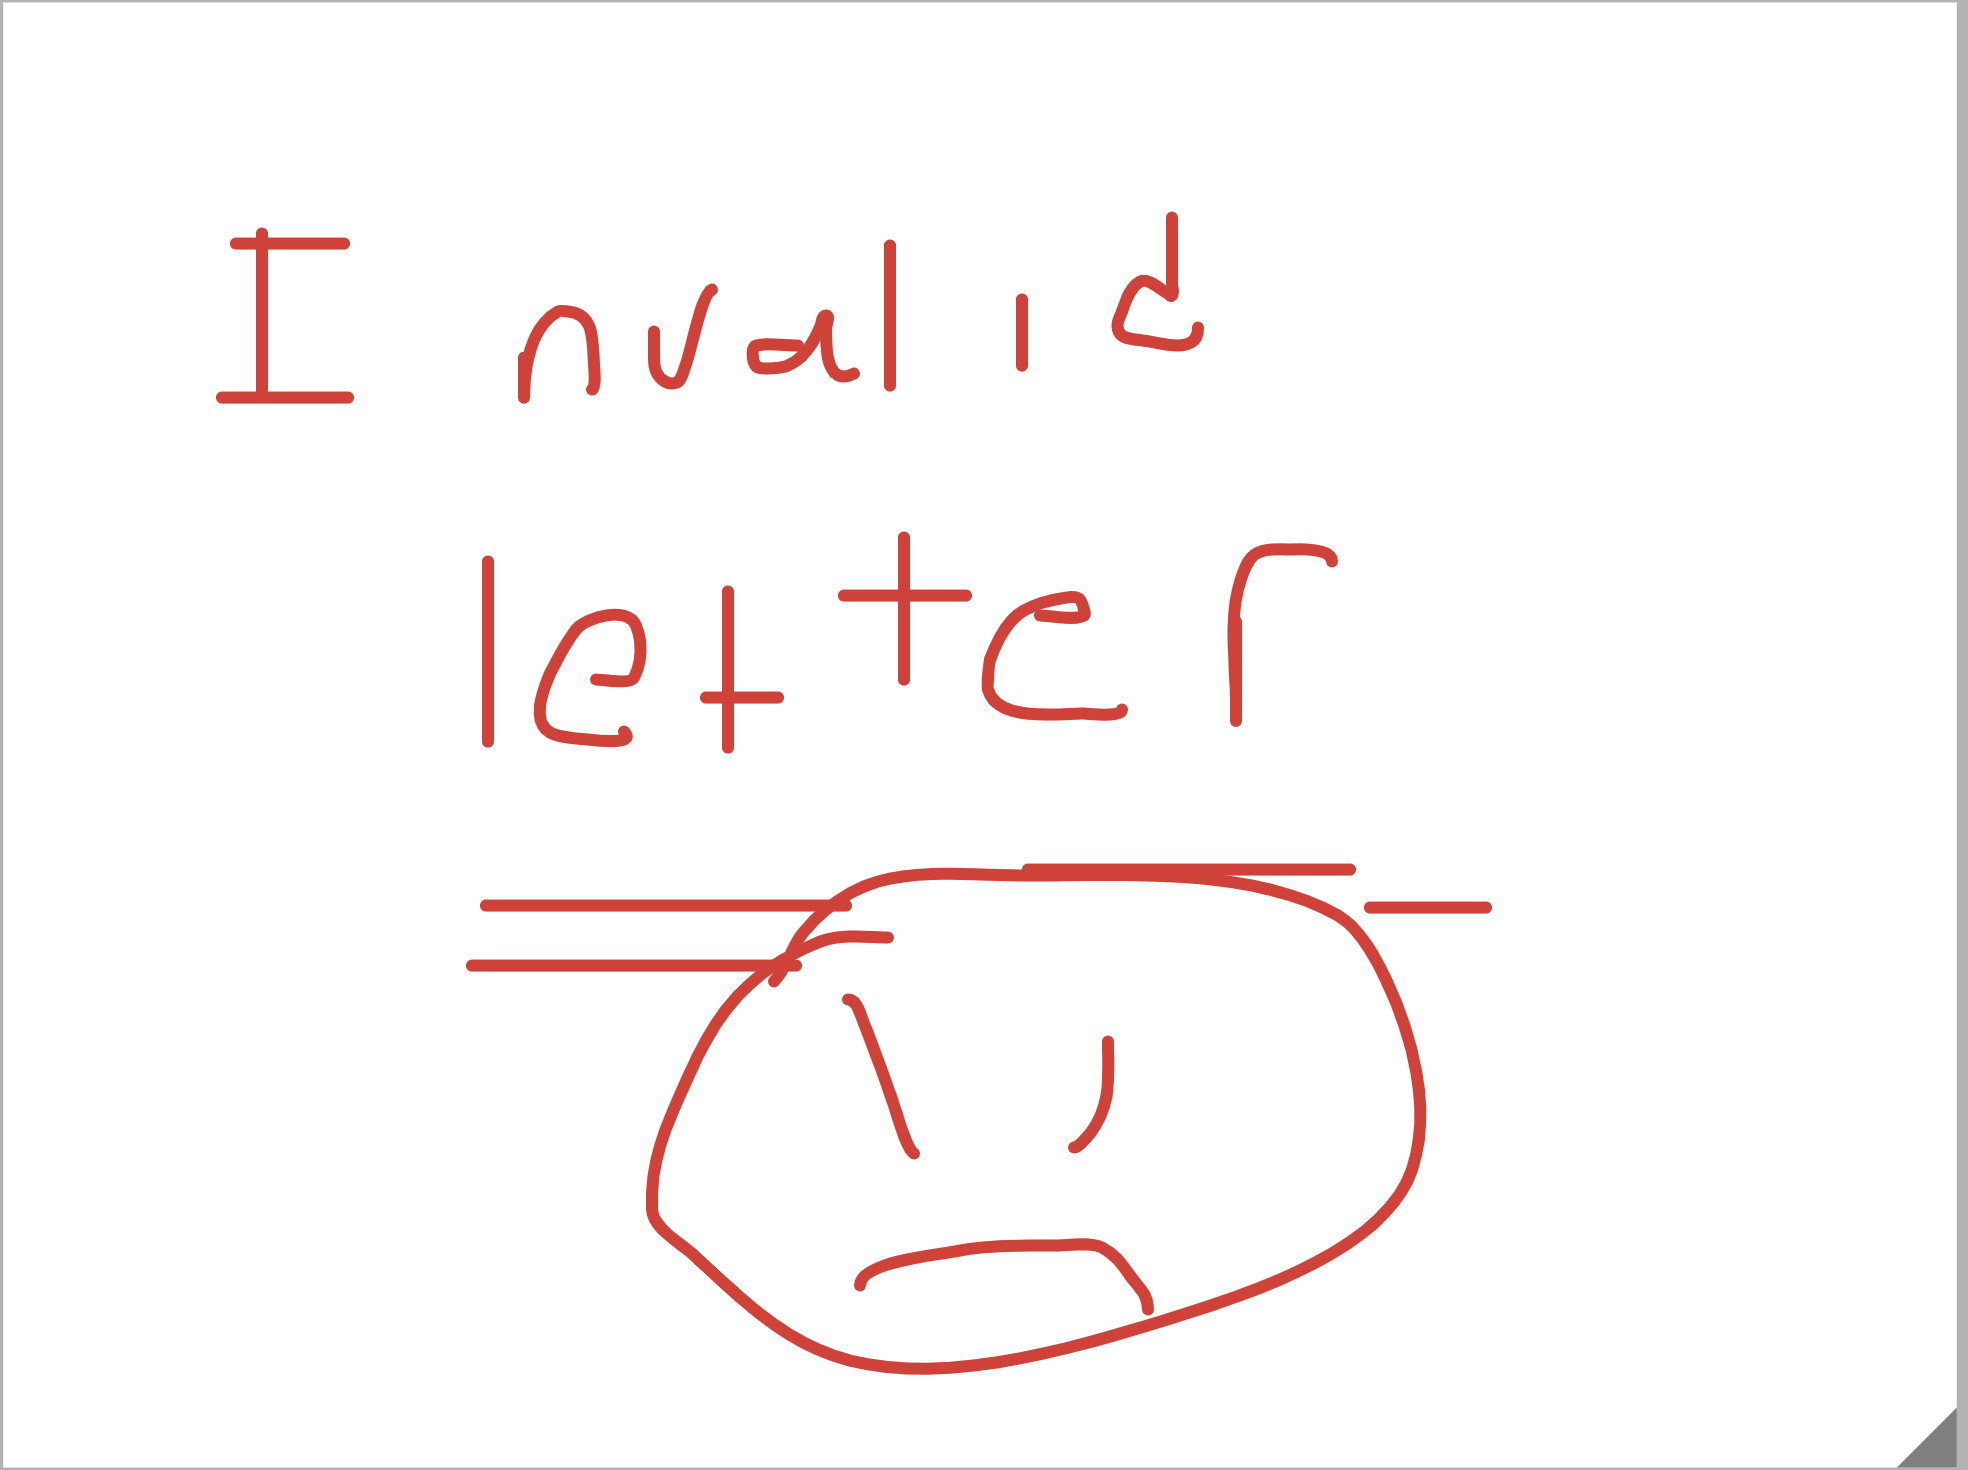 Invalid
letter